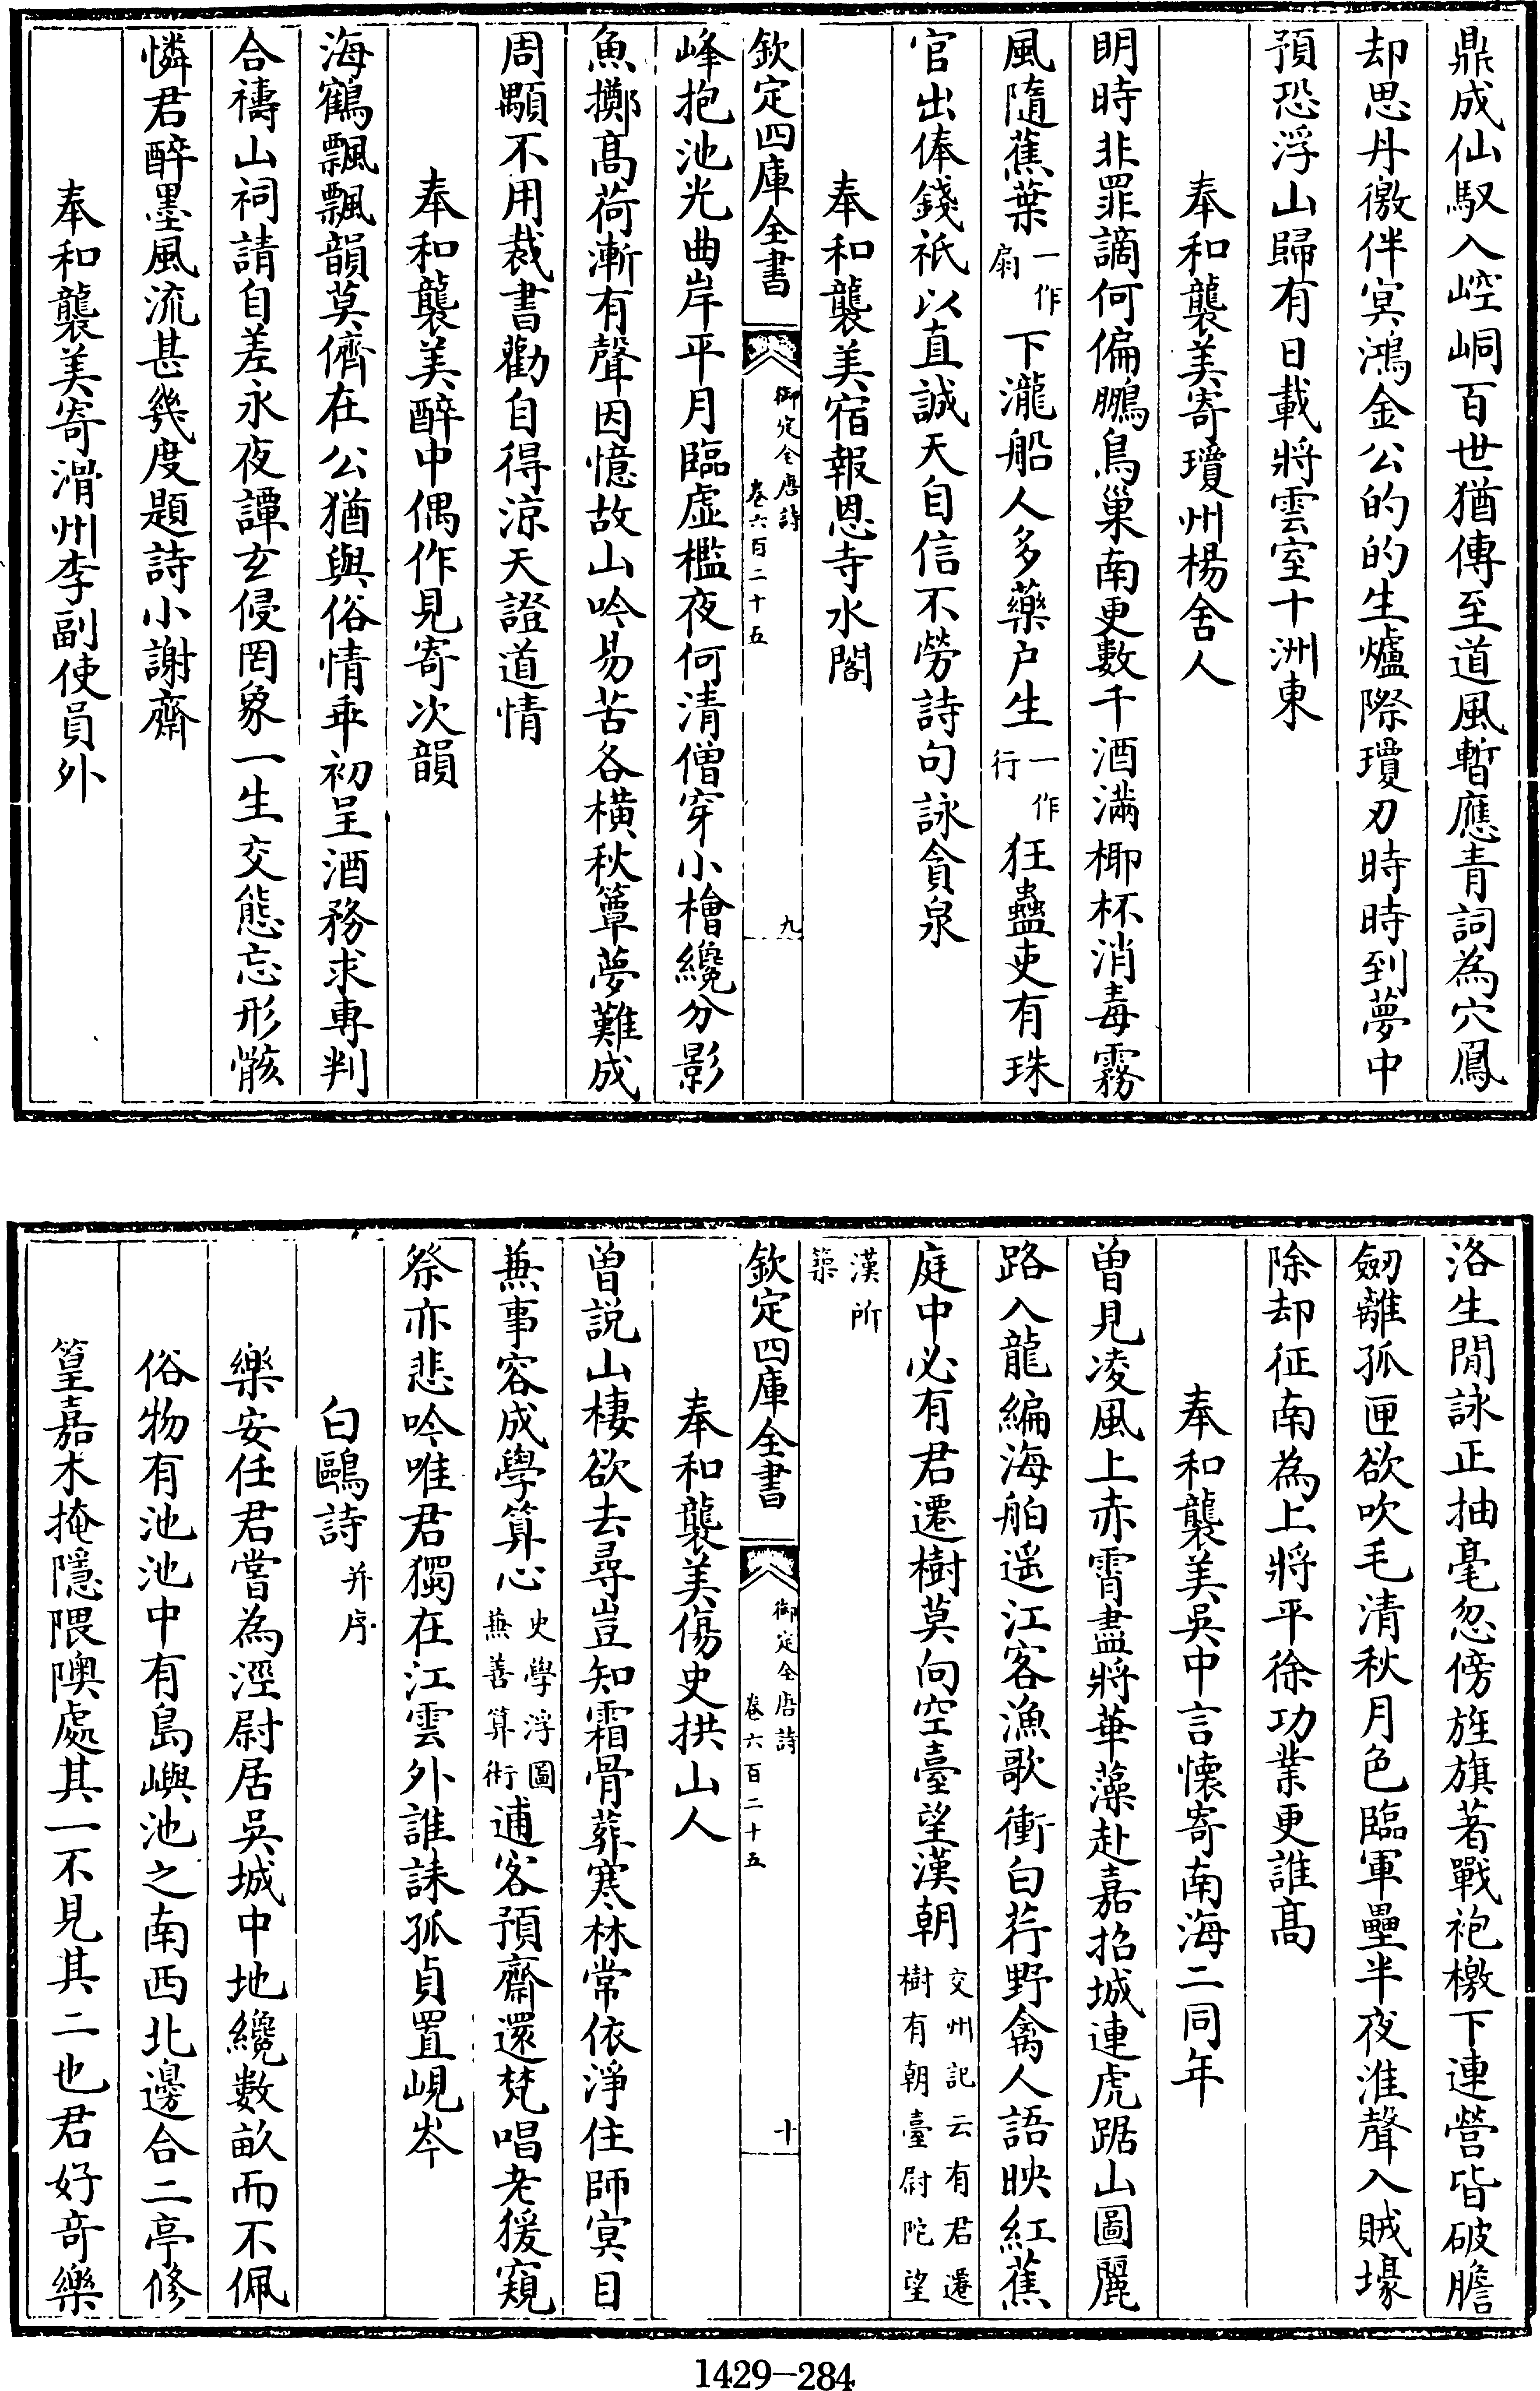 鼎成仙馭入崆峒百世猶傳至道風暫應青詞為穴鳳
却思丹徼伴冥鴻金公的的生爐際瓊刃時時到夢中
預恐浮山歸有日載將雲室十洲東
奉和襲美寄瓊州楊舍人
明時非罪謫何偏鵬鳥巢南更數千酒滿椰杯消毒霧
風隨蕉葉一作扇下瀧船人多藥戶生一作行狂蠱吏有珠
官出俸錢祇以直誠天自信不勞詩句詠貪泉
奉和襲美宿報恩寺水閣
欽定四庫全書 御定全唐詩 卷六百二十五 九
峰抱池光曲岸平月臨虛檻夜何清僧穿小檜纔分影
魚擲髙荷漸有聲因憶故山吟易苦各橫秋簟夢難成
周顒不用裁書勸自得涼天證道情
奉和襲美醉中偶作見寄次韻
海鶴飄飄韻莫儕在公猶與俗情乖初呈酒務求專判
合禱山祠請自差永夜譚玄侵罔象一生交態忘形骸
憐君醉墨風流甚幾度題詩小謝齋
奉和襲美寄滑州李副使員外
洛生閒詠正抽毫忽傍旌旗著戰袍檄下連營皆破膽
劒離孤匣欲吹毛清秋月色臨軍壘半夜淮聲入賊壕
除却征南為上將平徐功業更誰髙
奉和襲美吳中言懷寄南海二同年
曽見凌風上赤霄盡將華藻赴嘉招城連虎踞山圖麗
路入龍編海舶遥江客漁歌衝白荇野禽人語映紅蕉
庭中必有君遷樹莫向空臺望漢朝交州記云有君遷樹有朝臺尉陀望
漢所築
欽定四庫全書 御定全唐詩 卷六百二十五 十
奉和襲美傷史拱山人
曽説山棲欲去尋豈知霜骨葬寒林常依淨住師冥目
兼事容成學算心史學浮圖兼善算術逋客預齋還梵唱老猨窺
祭亦悲吟唯君獨在江雲外誰誄孤貞置峴岑
白鷗詩并序
樂安任君嘗為涇尉居吳城中地纔數畝而不佩
俗物有池池中有島嶼池之南西北邊合二亭修
篁嘉木掩隱隈隩處其一不見其二也君好竒樂
1429-284